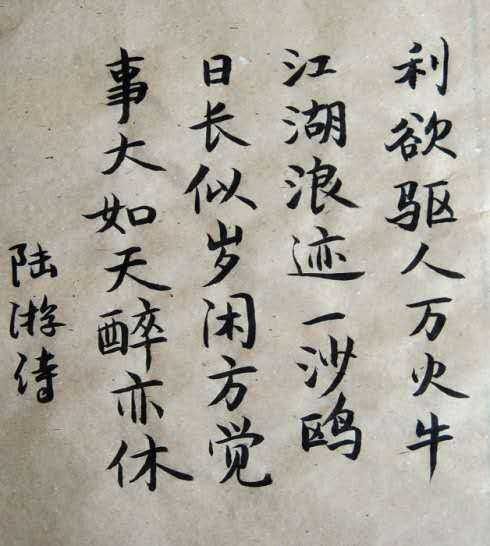 利欲驱人万火牛
江湖浪迹一沙鸥
日长似岁闲方觉
事大如天醉亦休
陆游诗